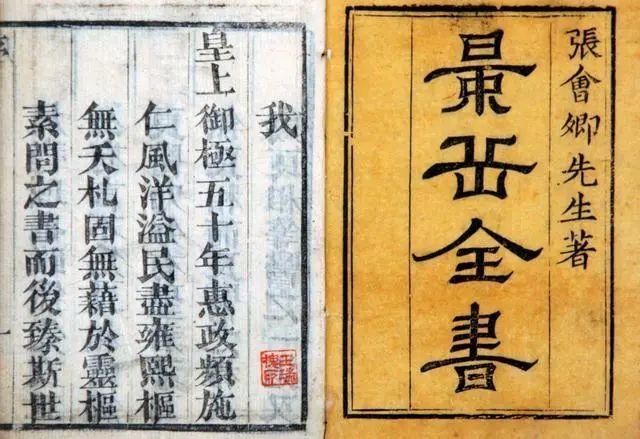 張會卿先生著
景岳全書
我
皇上御極五十年惠政類施
仁風洋溢民盡雍熙樞
無夭札固無藉於靈樞
素問之書而後臻斯世